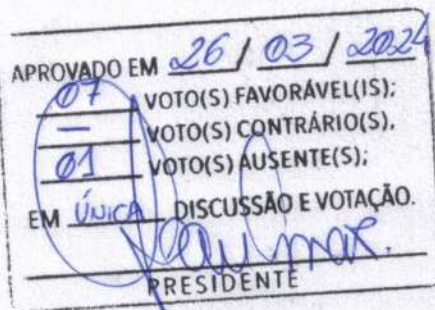 APROVADO EM 26 / 03 / 2024
07 VOTO(S) FAVORÁVEL(IS);
— VOTO(S) CONTRÁRIO(S),
01 VOTO(S) AUSENTE(S);
EM ÚNICA DISCUSSÃO E VOTAÇÃO.
PRESIDENTE